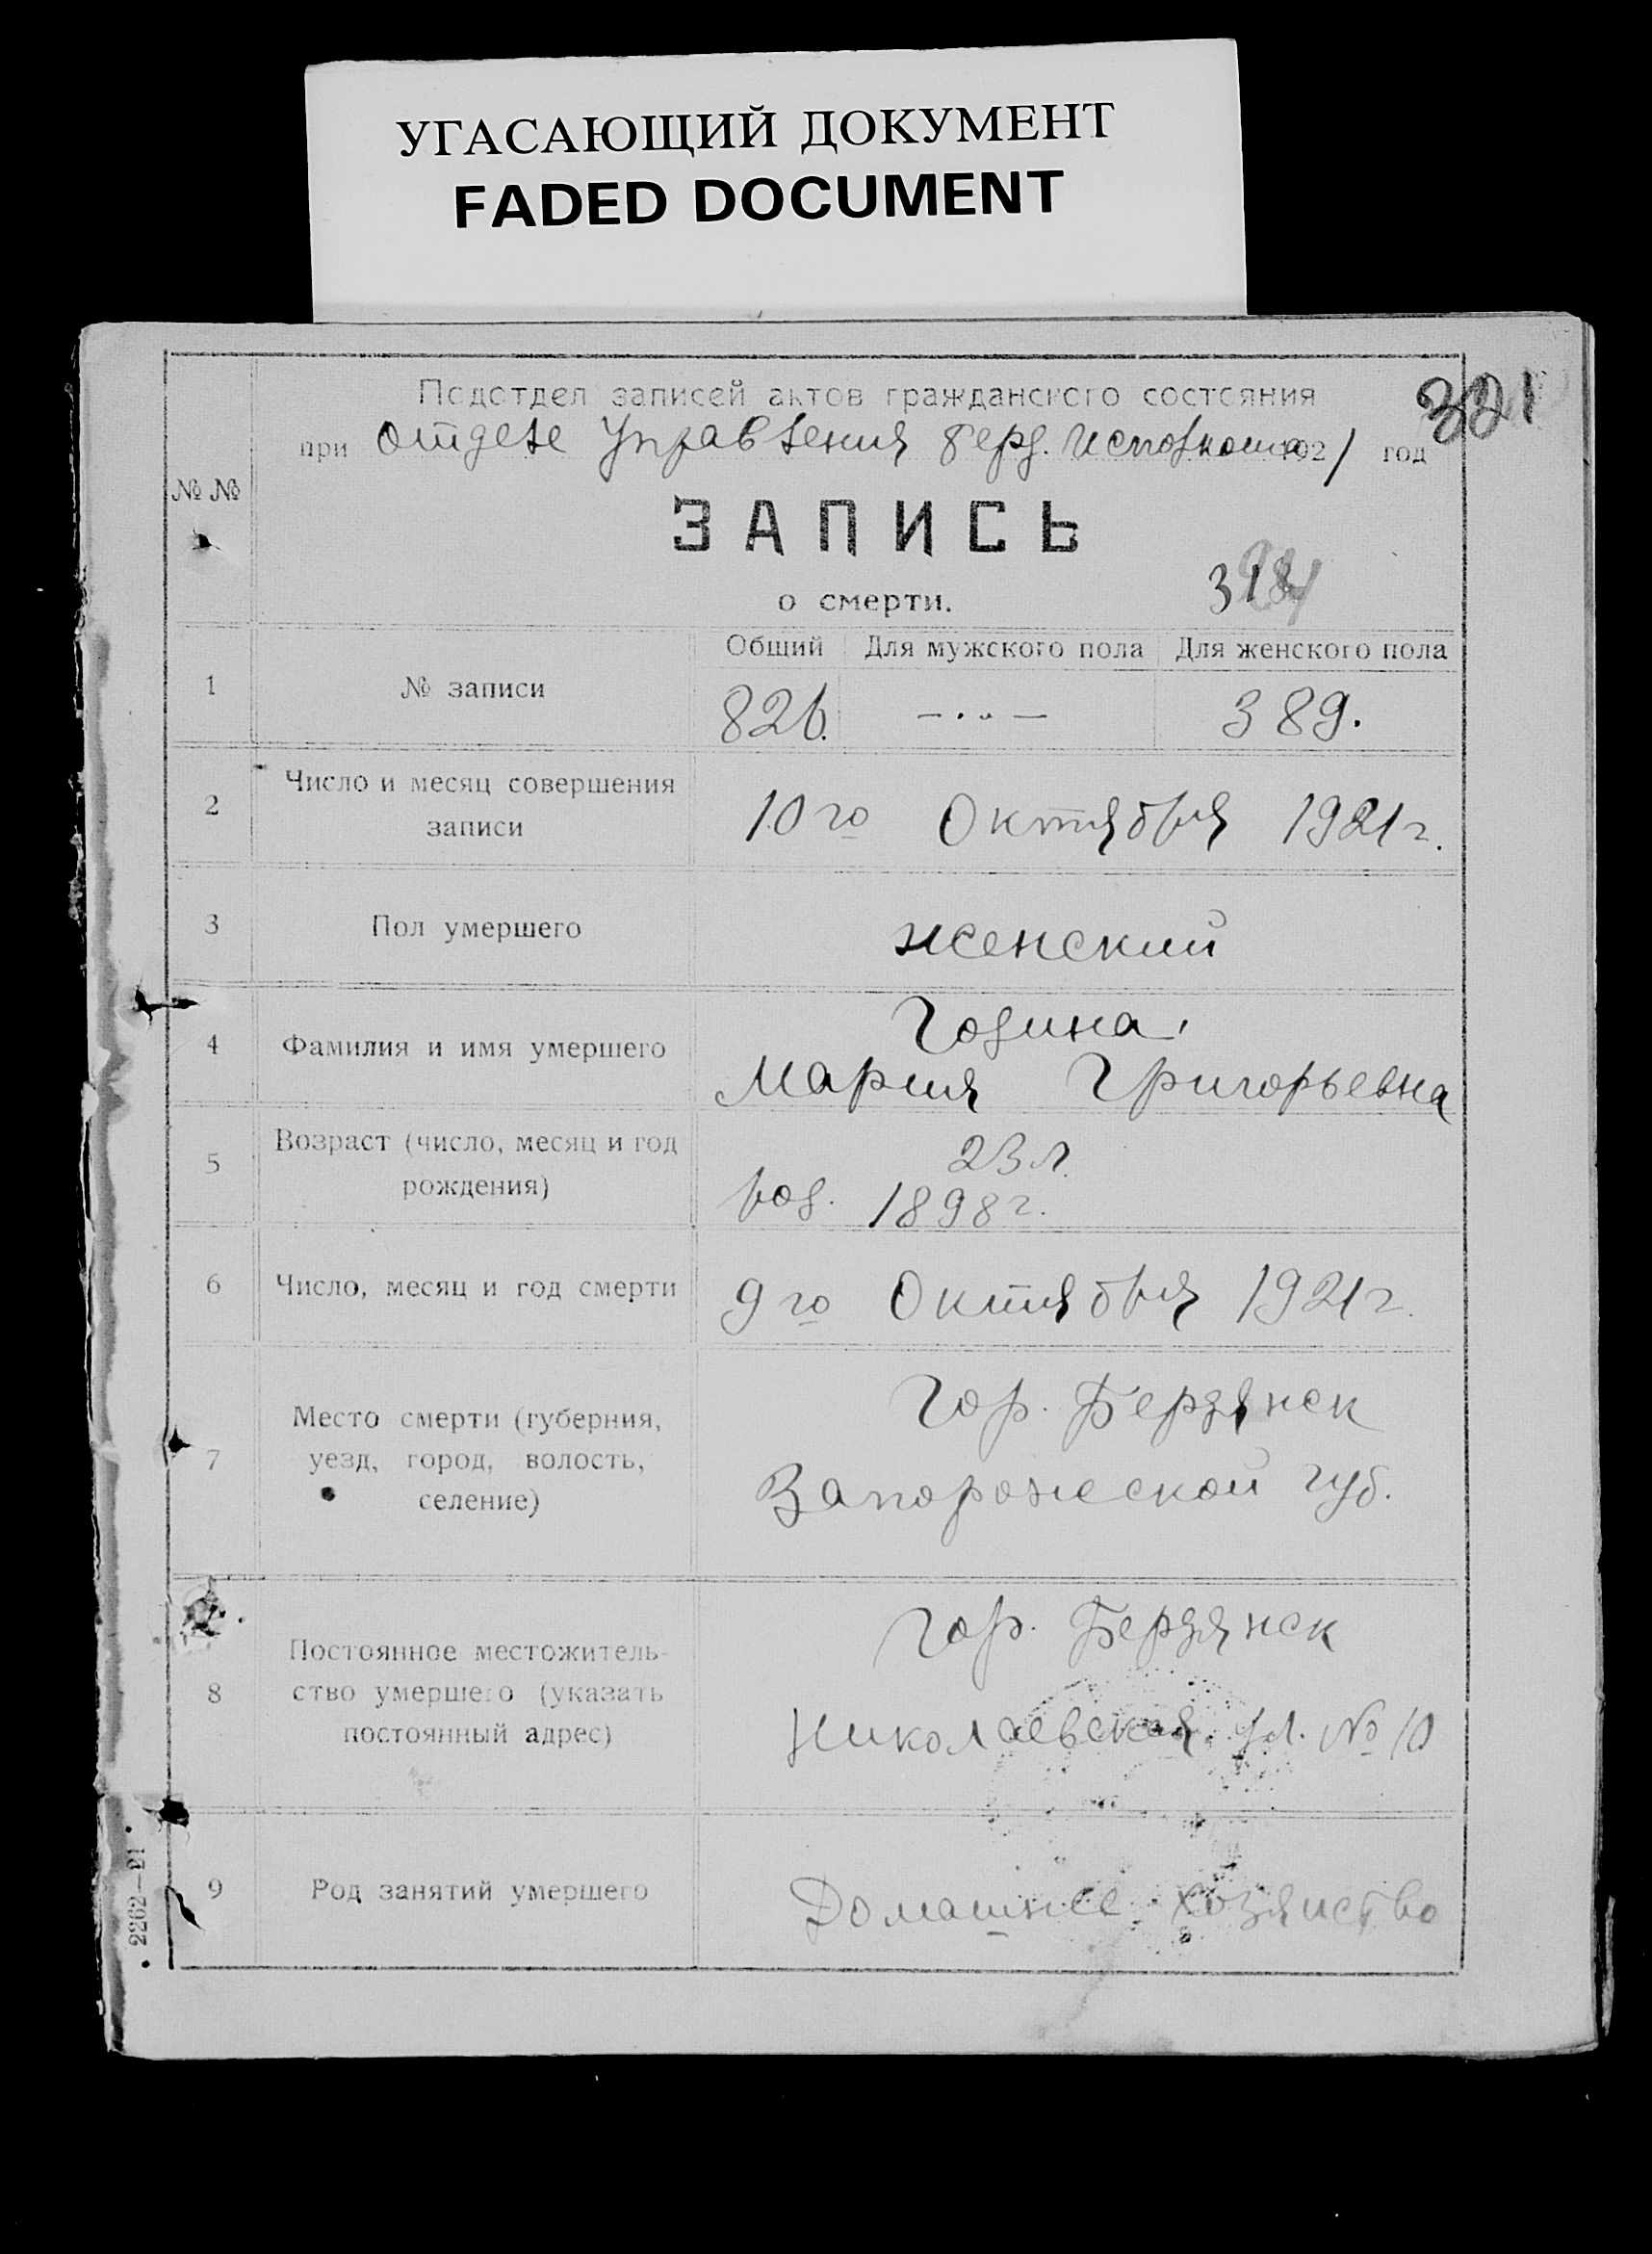 УГАСАЮЩИЙ ДОКУМЕНТ
FADED DOCUMENT
321
Подотдел записей актов гражданского состояния
при отделе Управления Берд. Исполкома 1921 год
№ №
ЗАПИСЬ
о смерти.
318
Общий Для мужского пола Для женского пола
1 № записи 826. — 389.
2 Число и месяц совершения
записи
10 го Октября 1921 г.
3 Пол умершего женский
4 Фамилия и имя умершего
Година,
Мария Григорьевна
5 Возраст (число, месяц и год
рождения)
23 л.
род. 1898 г.
6 Число, месяц и год смерти 9 го Октября 1921 г.
7 Место смерти (губерния,
уезд, город, волость,
селение)
Гор. Бердянск
Запорожской губ.
8 Постоянное местожитель-
ство умершего (указать
постоянный адрес)
Гор. Бердянск
Николаевская ул. № 10
9 Род занятий умершего Домашнее хозяиство
2262—21